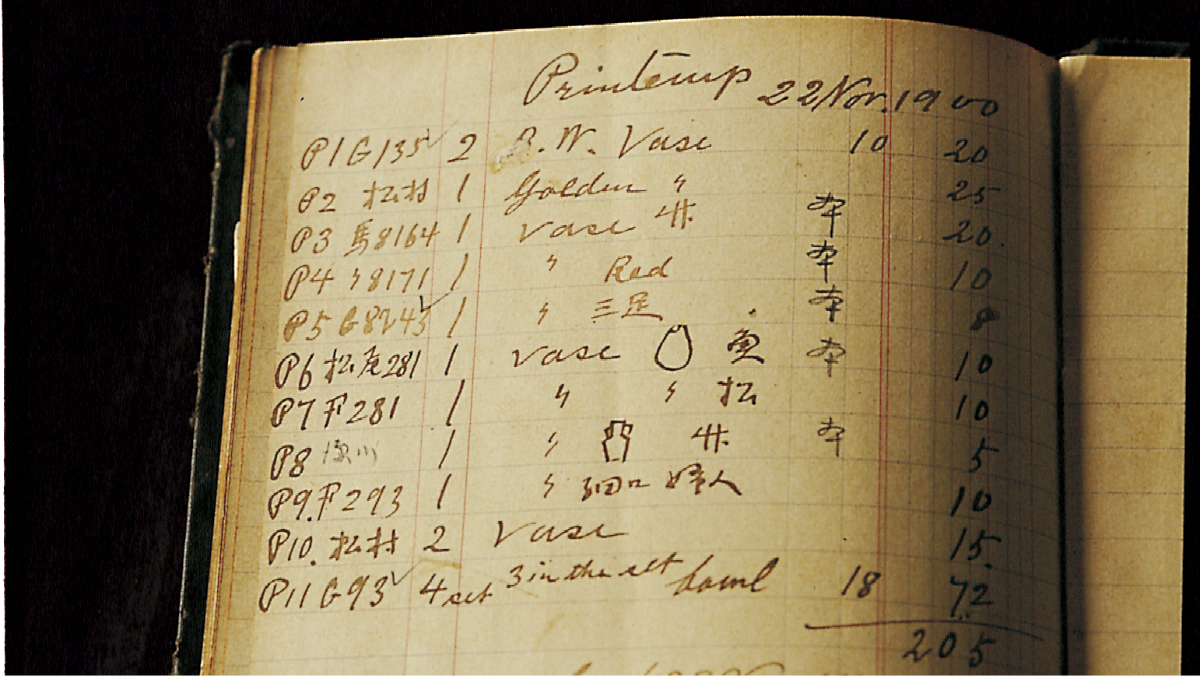 Printemp 22 Nov. 1900
P1 G135 2 B.W. Vase 10 20
P2 松村 1 Golden 〃 25
P3 馬8164 1 Vase 廾 20.
P4 〃8171 1 〃 Red 10
P5 G8243 1 〃 三足 8
P6 松尾281 1 Vase 魚 10
P7 F281 1 〃 〃 松 10
P8 1 〃 廾 5
P9. F293 1 〃 細口 婦人 10
P10. 松村 2 Vase 15.
P11 G93 4 set 3 in the set bowl 18 72
205